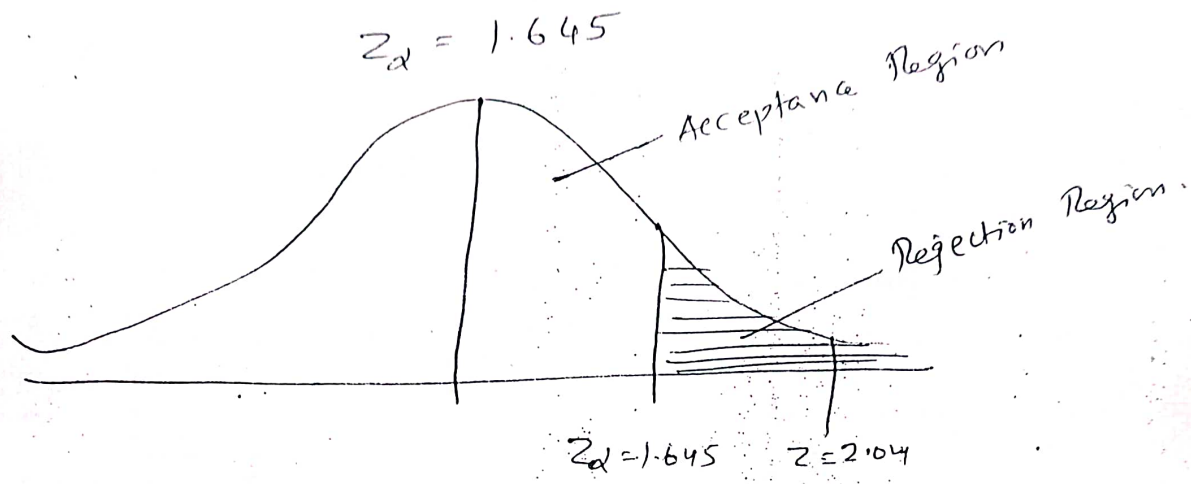 Zα = 1.645
Acceptance Region
Rejection Region.
Zα = 1.645
Z = 2.04